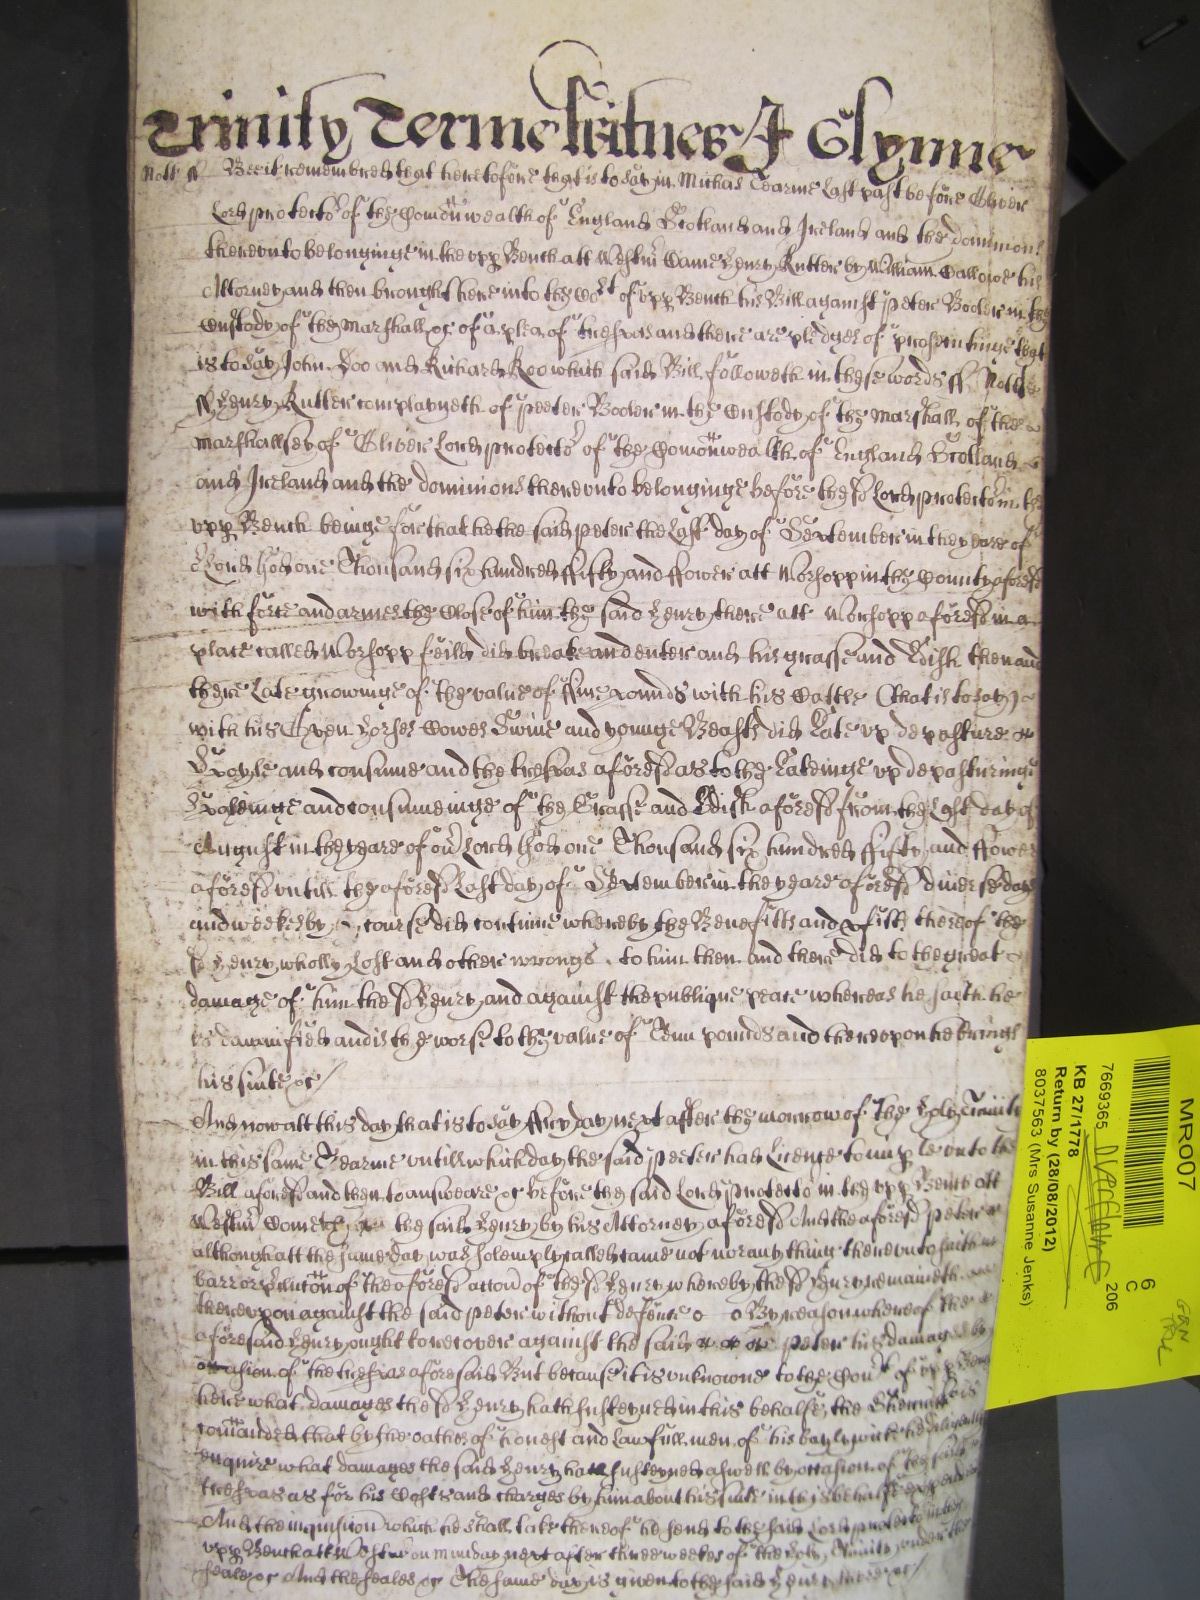 Trinity Terme Witnes J Glynne
Nott ss Bee it remembred that heretofore that is to say in Michas Tearme last past before Oliver
Lord protector of the Comonwealth of England Scotland and Ireland and the dominions
thereunto belonginge in the upp Bench att Westmr Came Henry Rutter by William Gallowe his
Attorney and then brought here into the Court of upp Bench his Bill against Peter Booler in the
Custody of the Marshall &c of a plea of trespas and there are pledges of prosecutinge that
is to say John Doo and Richard Roo which said Bill followeth in these words ss Nott
ss Henry Rutter complayneth of Peeter Booler in the Custody of the Marshall of the
Marshallsey of Oliver Lord protector of the Comonwealth of England Scotland
and Ireland and the dominions thereunto belonginge before the sd Lord protector in the
upp Bench beinge for that he the said Peter the Last day of September in the yeare of
Lord God one Thousand six hundred fifty and ffower att Worsopp in the County aforesd
with force and armes the Close of him the said Henry there att Worsopp aforesd in a
place called Worsopp feild did breake and enter and his grasse and Edish then and
there late growinge of the value of ffive pounds with his Cattle (that is to say)
with his Oxen horses Cowes Swine and younge Beasts did Eate up depasture
Spoyle and consume and the trespas aforesd as to the Eateinge up depasturinge
Spoyleinge and consumeinge of the Grasse and Edish aforesd from the last day of
August in the yeare of our Lord God one Thousand six hundred fifty and ffower
aforesd untill the aforesd Last day of September in the yeare aforesd diverse dayes
and weekes by course did continue whereby the Benefitts and pfitts thereof the
sd Henry wholly Lost and other wrongs to him then and there did to the great
damage of him the sd Henry and against the publique peace whereas he saith he
is damnified and is the worse to the value of Tenn pounds and thereupon he brings
his suite &c/
And now att this day that is to say ffryday next after the morrow of the Holy Trinity
in this same Tearme untill which day the said Peeter had Licence to imple unto the
Bill aforesd and then to answeare &c before the said Lord protector in the upp Bench att
Westmr Cometh the said Henry by his Attorney aforesd And the aforesd Peter
although att the same day was solemply called came not nor any thing thereunto saith in
barr or preclucon of the aforesd accon of the sd Henry whereby the sd Henry remaineth
thereupon against the said Peter without defence By reason whereof the
aforesaid Henry ought to recover against the said Peter his damages by
occasion of the trespas aforesaid But because it is unknowne to the Court of upp Bench
here what damages the sd Henry hath susteyned in this behalfe, the Sherriffe is
comanded that by the oathes of honest and lawfull men of his baylywick he diligently
enquire what damages the said Henry hath susteyned aswell by occasion of the said
trespas as for his Costs and charges by him about his suite in this behalfe expended
And the inquisicon which he shall take thereof he send to the said Lord protector in the
upp Bench att Westmr on munday next after three weekes of the Holy Trinity under the
seale &c And the seales &c The same day is given to the said Henry there &c/
MR007
7669365
206
6
C
KB 27/1778
Return by (28/08/2012)
8037563 (Mrs Susanne Jenks)